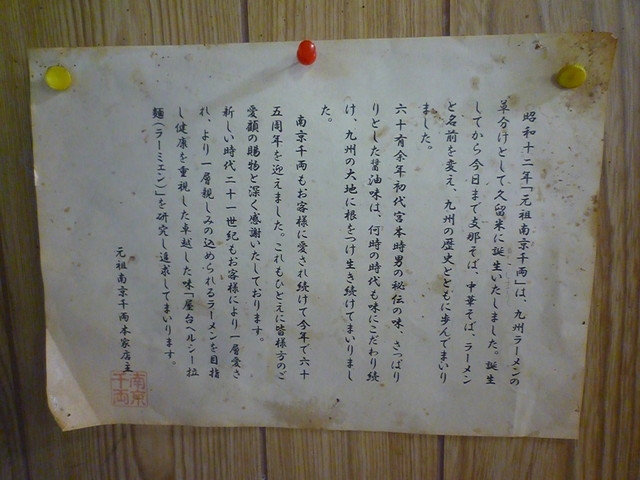 昭和十二年「元祖南京千両」は、九州ラーメンの
草分けとして久留米に誕生いたしました。誕生
してから今日まで支那そば、中華そば、ラーメン
と名前を変え、九州の歴史とともに歩んでまいり
ました。
六十有余年初代宮本時男の秘伝の味、さっぱ
りとした醤油味は、何時の時代も味にこだわり続
け、九州の大地に根をつけ生き続けてまいりまし
た。
南京千両もお客様に愛され続けて今年で六十
五周年を迎えました。これもひとえに皆様方のご
愛顧の賜物と深く感謝いたしております。
新しい時代二十一世紀もお客様により一層愛さ
れ、より一層親しみの込められるラーメンを目指
し健康を重視した卓越した味「屋台ヘルシー拉
麺(ラーミェン)」を研究し追求してまいります。
元祖南京千両本家店主
南京
千両